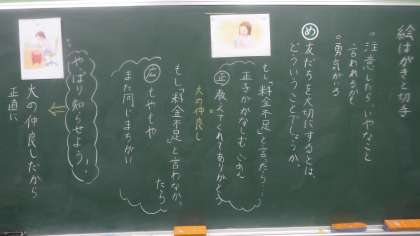 絵はがきと切手
。注意したら、いやなこと
言われるかも
。勇気がいる
め 友だちを大切にするとは、
どういうことでしょうか。
もし「料金不足」と言ったら…
正子がかなしむ
正 教えてくれてありがとう
大の仲良し
もし「料金不足」と言わなかったら
もやもや
また同じまちがい
やっぱり知らせよう!
大の仲良しだから
正直に